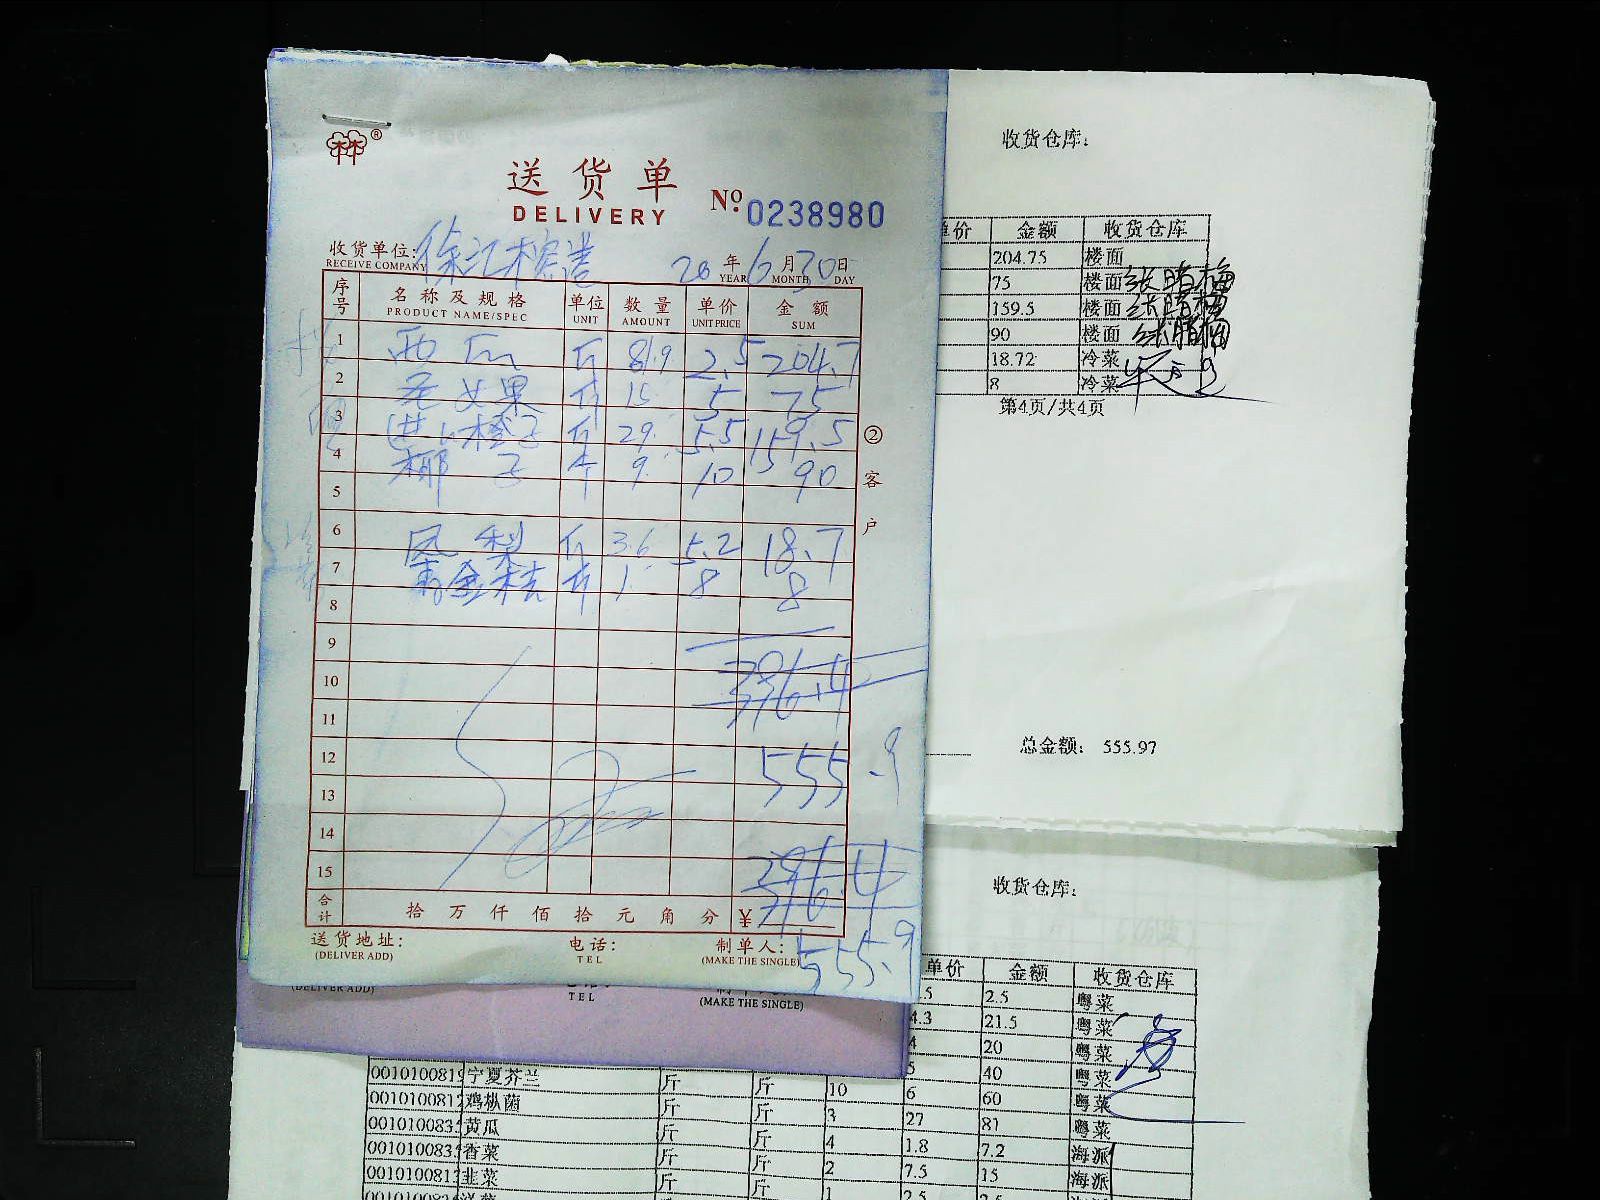 送货单
DELIVERY
№ 0238980
收货单位:
RECEIVE COMPANY
20 年 6 月 30 日
YEAR MONTH DAY
序号 名称及规格 单位 数量 单价 金额
PRODUCT NAME/SPEC UNIT AMOUNT UNIT PRICE SUM
1 西瓜 斤 81.9 2.5 204.7
2 圣女果 斤 15 5 75
3 进口橙子 斤 29 5.5 159.5
4 椰子 个 9 10 90
5
6 凤梨 斤 3.6 5.2 18.7
7 青金桔 斤 1 8 8
8
9
10
11
12 555.9
13
14
15
合计 拾 万 仟 佰 拾 元 角 分 ¥
555.9
送货地址: 电话: 制单人:
(DELIVER ADD) TEL (MAKE THE SINGLE)
② 客户
(DELIVER ADD) TEL (MAKE THE SINGLE)
收货仓库:
单价 金额 收货仓库
204.75 楼面
75 楼面 张腊梅
159.5 楼面 张腊梅
90 楼面 张腊梅
18.72 冷菜
8 冷菜
第4页/共4页
总金额: 555.97
收货仓库:
单价 金额 收货仓库
.5 2.5 粤菜
4.3 21.5 粤菜
4 20 粤菜
宁夏芥兰 斤 斤 10 5 40 粤菜
鸡枞菌 斤 斤 3 6 60 粤菜
黄瓜 斤 斤 4 27 81 粤菜
香菜 斤 斤 2 1.8 7.2 海派
韭菜 斤 斤 1 7.5 15 海派
2.5 2.5